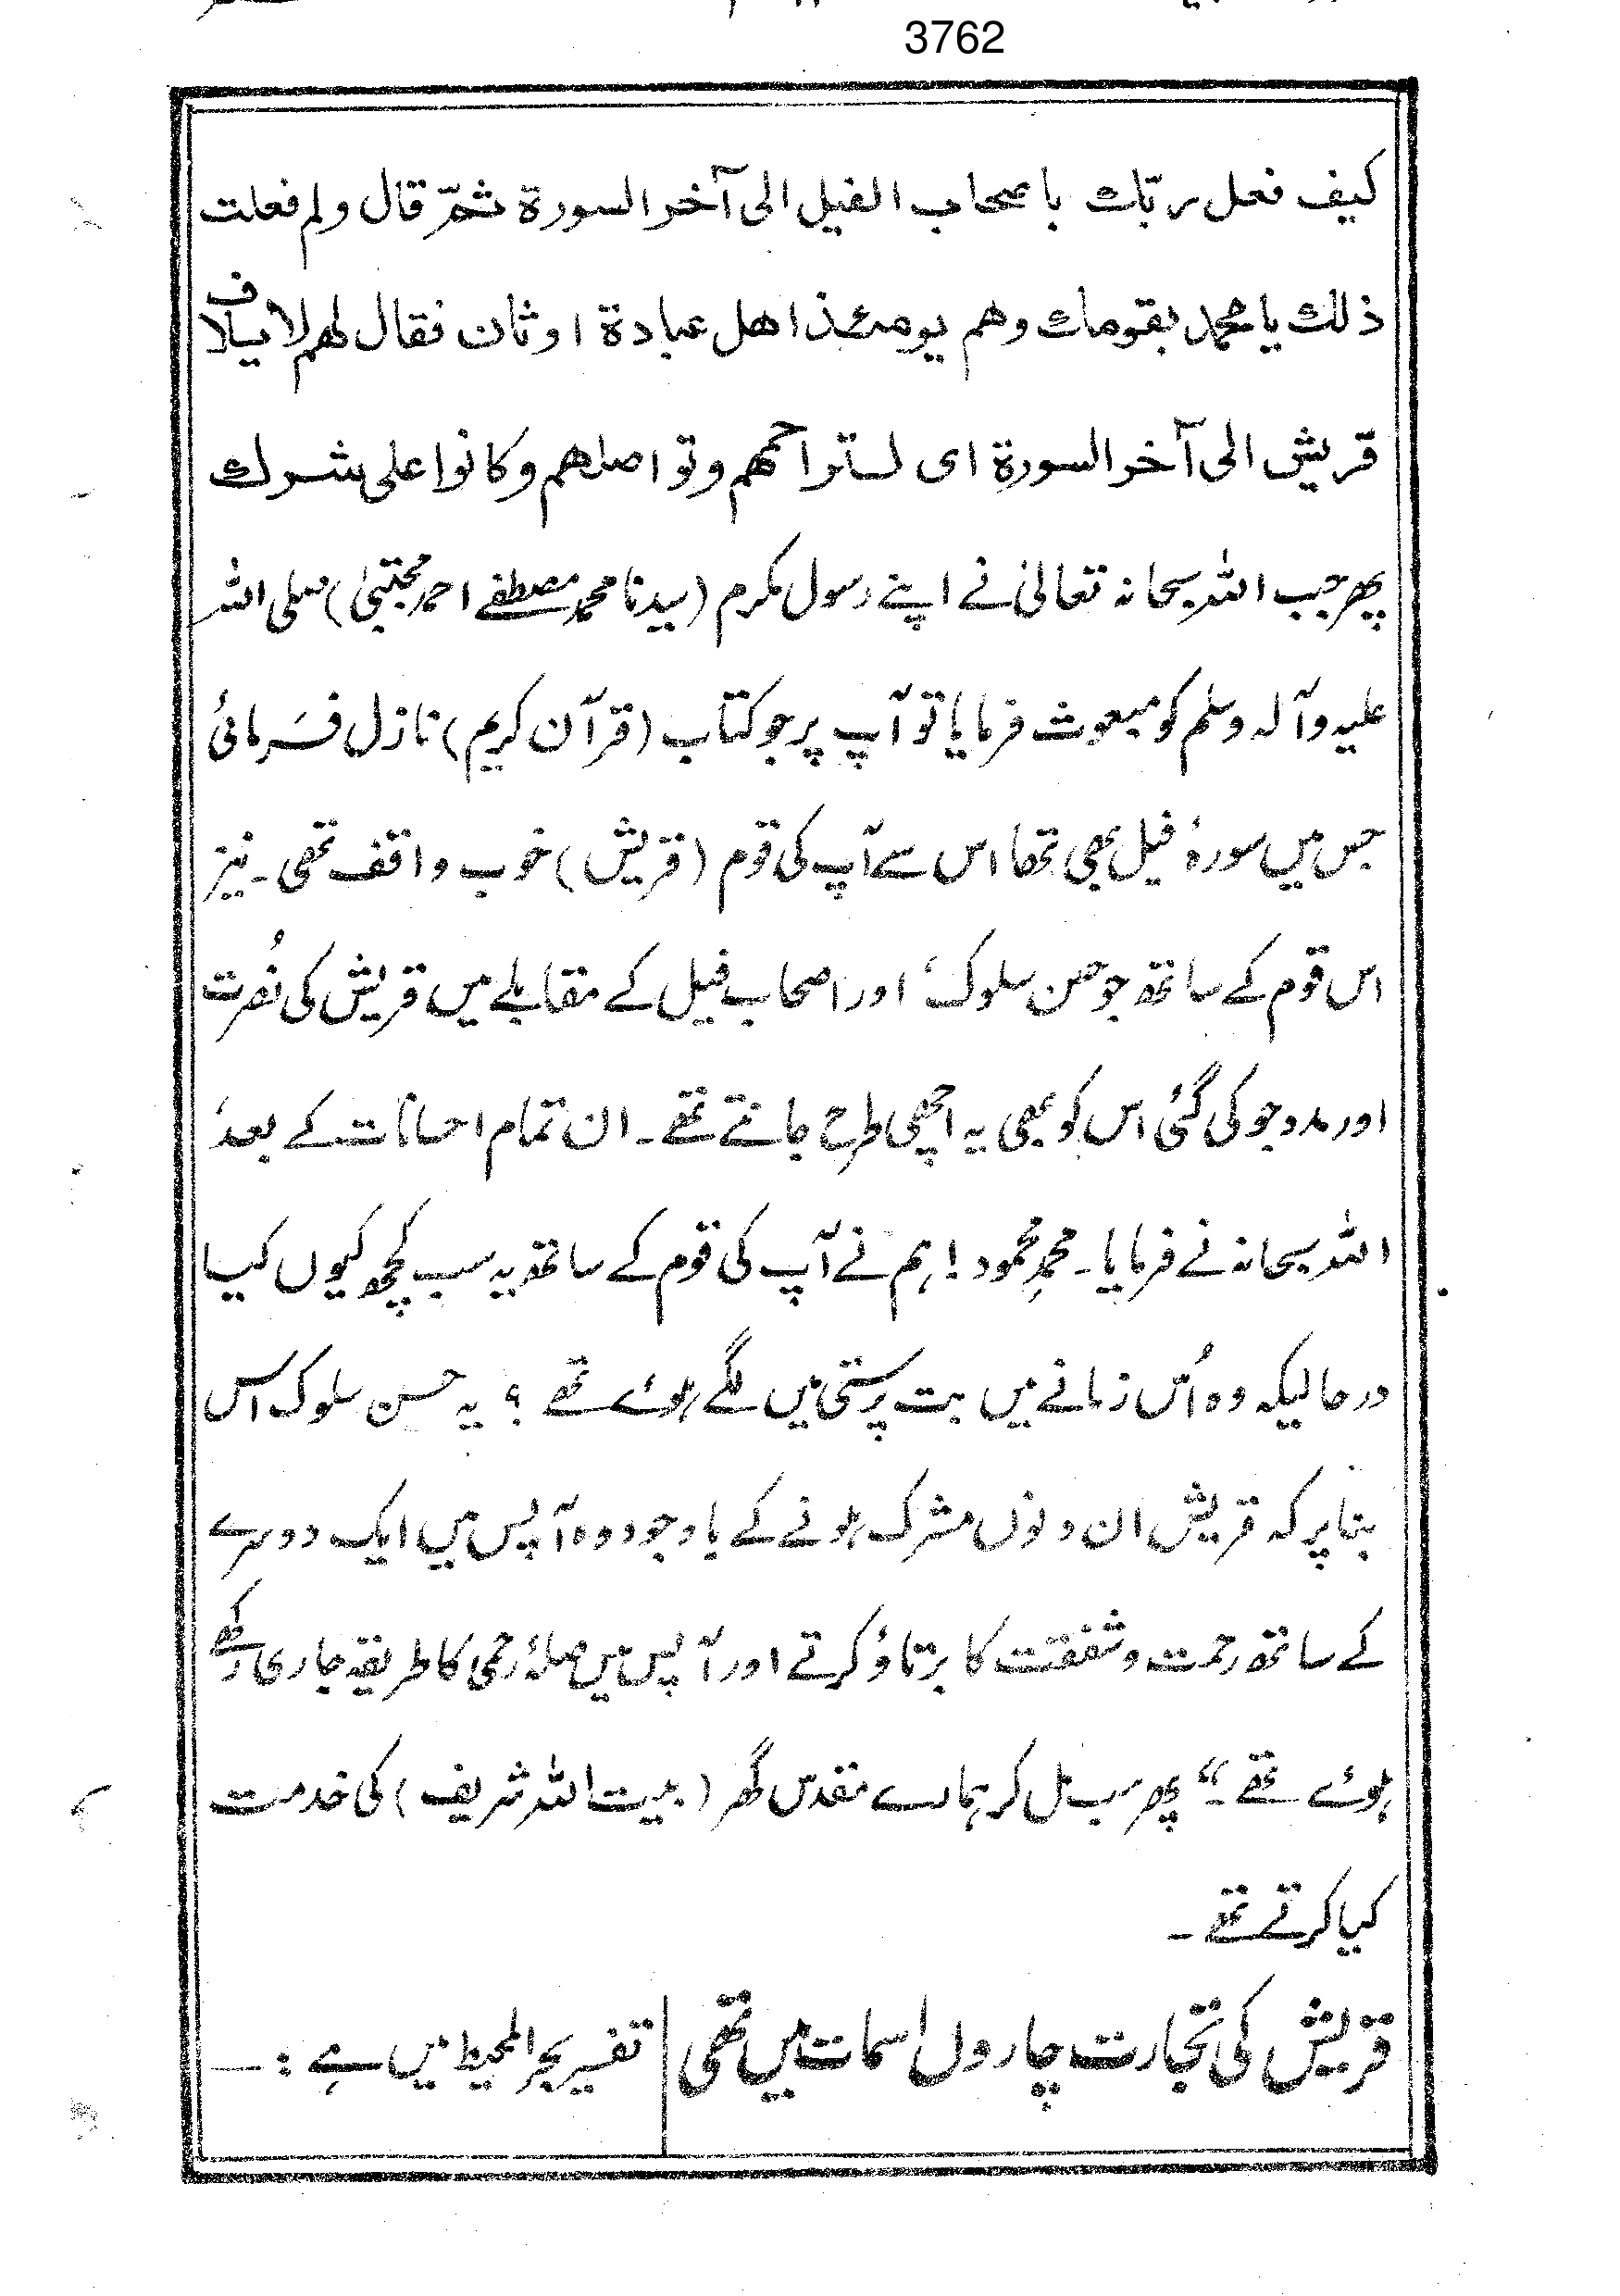 3762
كيف فعل ربّك باصحاب الفيل الى آخر السورة ثمّ قال ولم فعلت
ذلك يا محمد بقومك وهم يومئذ اهل عبادة اوثان فقال لهم لايلاف
قريش الى آخر السورة اى لتراحمهم وتواصلهم وكانوا على شرك
پھر جب اللہ سبحانہ تعالیٰ نے اپنے رسول مکرم (سیدنا محمد مصطفےٰ احمد مجتبیٰ) صلی اللہ
علیہ وآلہ وسلم کو مبعوث فرمایا تو آپ پر جو کتاب (قرآن کریم) نازل فرمائی
جس میں سورۂ فیل بھی تھا اس سے آپ کی قوم (قریش) خوب واقف تھی۔ نیز
اس قوم کے ساتھ جو حسن سلوک، اور اصحاب فیل کے مقابلے میں قریش کی نُصرت
اور مدد جو کی گئی اس کو بھی یہ اچھی طرح جانتے تھے۔ ان تمام احسانات کے بعد،
اللہ سبحانہ نے فرمایا۔ محمدِ محمود! ہم نے آپ کی قوم کے ساتھ یہ سب کچھ کیوں کیا
درحالیکہ وہ اُس زمانے میں بت پرستی میں لگے ہوئے تھے ؟ یہ حسن سلوک اس
بنا پر کہ قریش ان دنوں مشرک ہونے کے باوجود وہ آپس میں ایک دوسرے
کے ساتھ رحمت و شفقت کا برتاؤ کرتے اور آپس میں صلۂ رحمی کا طریقہ جاری رکھے
ہوئے تھے۔“ پھر سب مل کر ہمارے مقدس گھر (بیت اللہ شریف) کی خدمت
کیا کرتے تھے۔
قریش کی تجارت چاروں سمات میں تھی | تفسیر بحر المحیط میں ہے :—